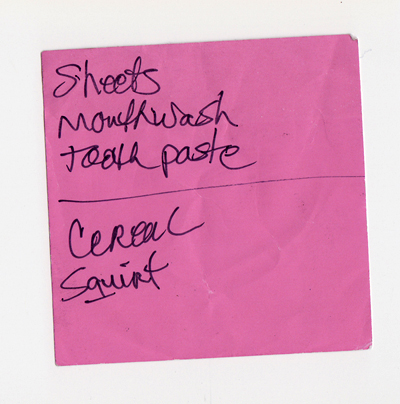 Sheets
Mouthwash
Toothpaste
Cereal
Squirt